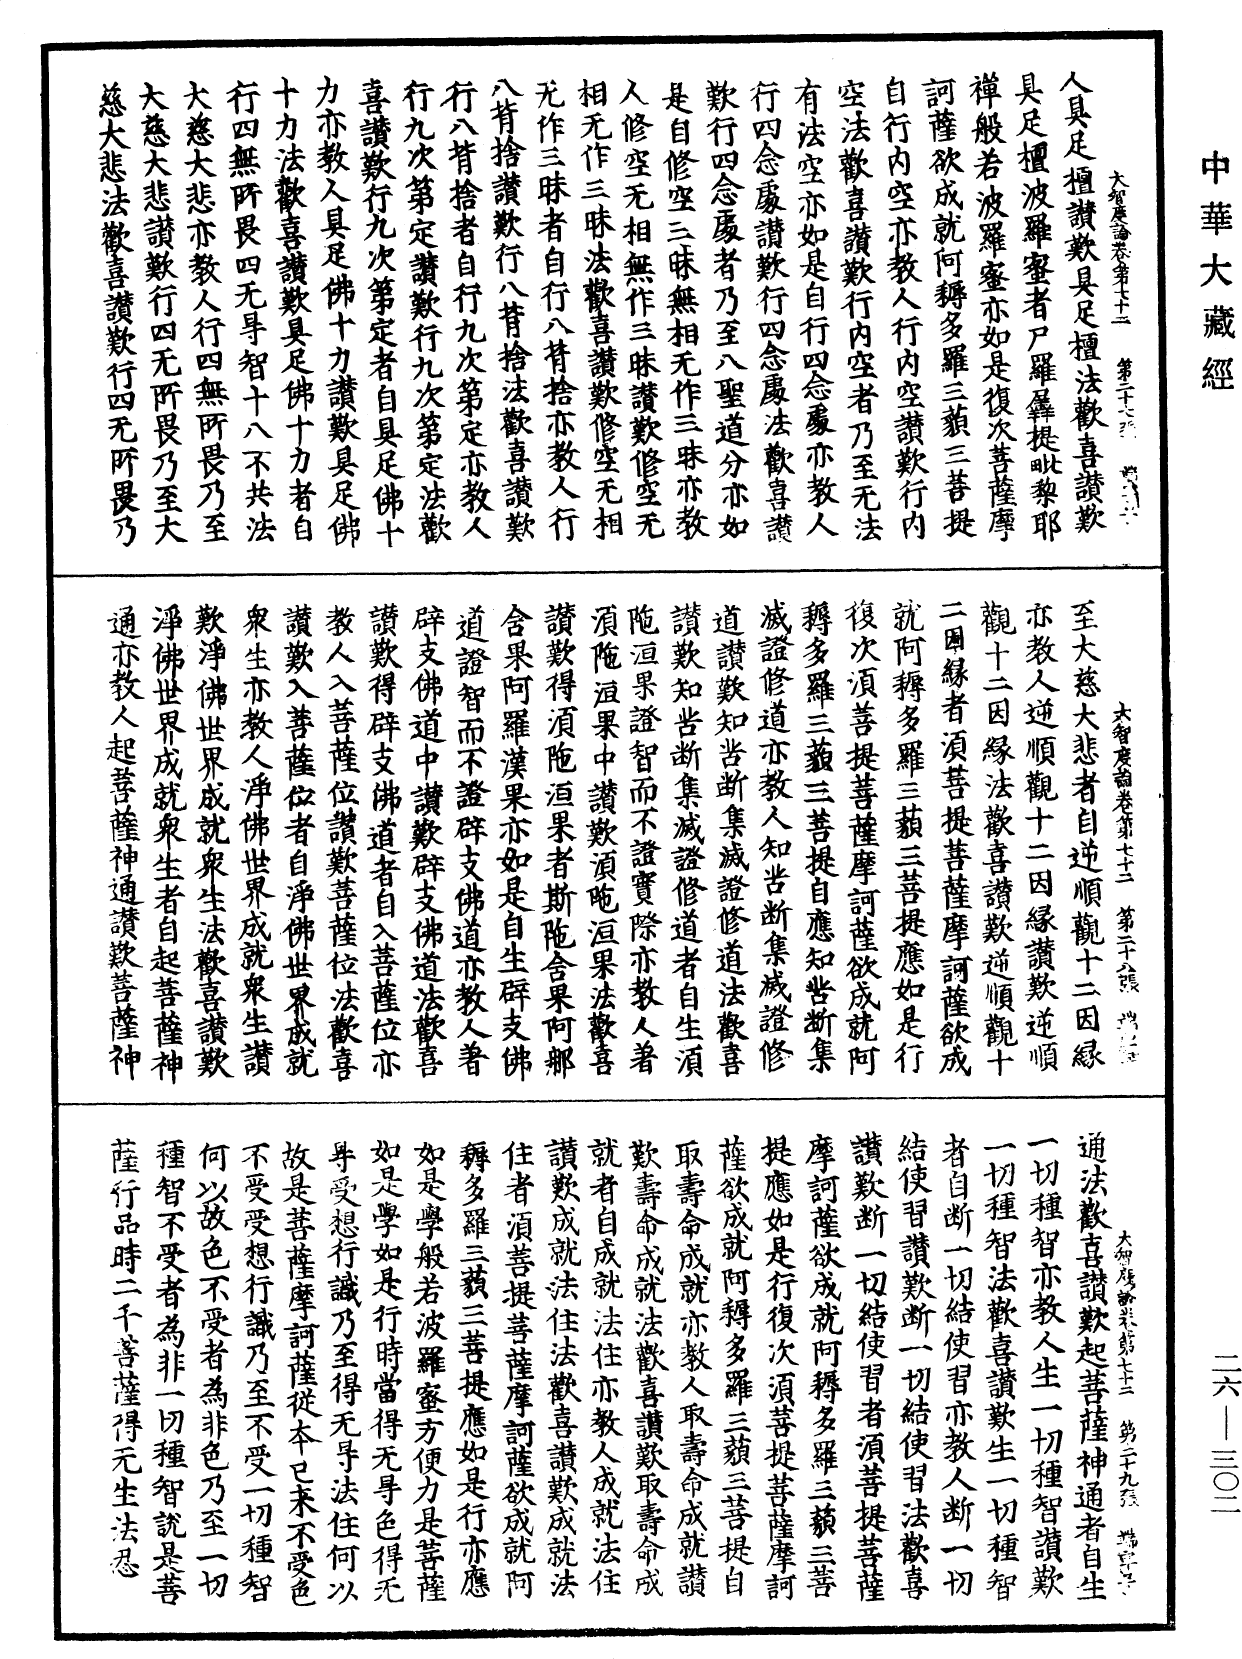 中華大藏經
大智度論卷第七十二　第二十七張
人具足檀讃歎具足檀法歡喜讃歎
具足檀波羅蜜者尸羅羼提毗黎耶
禪般若波羅蜜亦如是復次菩薩摩
訶薩欲成就阿耨多羅三藐三菩提
自行内空亦教人行内空讃歎行内
空法歡喜讃歎行内空者乃至无法
有法空亦如是自行四念處亦教人
行四念處讃歎行四念處法歡喜讃
歎行四念處者乃至八聖道分亦如
是自修空三昧無相无作三昧亦教
人修空无相無作三昧讃歎修空无
相无作三昧法歡喜讃歎修空无相
无作三昧者自行八背捨亦教人行
八背捨讃歎行八背捨法歡喜讃歎
行八背捨者自行九次第定亦教人
行九次第定讃歎行九次第定法歡
喜讃歎行九次第定者自具足佛十
力亦教人具足佛十力讃歎具足佛
十力法歡喜讃歎具足佛十力者自
行四無所畏四无㝵智十八不共法
大慈大悲亦教人行四無所畏乃至
大慈大悲讃歎行四无所畏乃至大
慈大悲法歡喜讃歎行四无所畏乃
大智度論卷第七十二　第二十八張
至大慈大悲者自逆順觀十二因緣
亦教人逆順觀十二因緣讃歎逆順
觀十二因緣法歡喜讃歎逆順觀十
二因緣者須菩提菩薩摩訶薩欲成
就阿耨多羅三藐三菩提應如是行
復次須菩提菩薩摩訶薩欲成就阿
耨多羅三藐三菩提自應知苦断集
滅證修道亦教人知苦断集滅證修
道讃歎知苦断集滅證修道法歡喜
讃歎知苦断集滅證修道者自生須
陁洹果證智而不證實際亦教人著
須陁洹果中讃歎須陁洹果法歡喜
讃歎得須陁洹果者斯陁含果阿那
含果阿羅漢果亦如是自生辟支佛
道證智而不證辟支佛道亦教人著
辟支佛道中讃歎辟支佛道法歡喜
讃歎得辟支佛道者自入菩薩位亦
教人入菩薩位讃歎菩薩位法歡喜
讃歎入菩薩位者自淨佛世界成就
衆生亦教人淨佛世界成就衆生讃
歎淨佛世界成就衆生法歡喜讃歎
淨佛世界成就衆生者自起菩薩神
通亦教人起菩薩神通讃歎菩薩神
大智度論卷第七十二　第二十九張
通法歡喜讃歎起菩薩神通者自生
一切種智亦教人生一切種智讃歎
一切種智法歡喜讃歎生一切種智
者自断一切結使習亦教人断一切
結使習讃歎断一切結使習法歡喜
讃歎断一切結使習者須菩提菩薩
摩訶薩欲成就阿耨多羅三藐三菩
提應如是行復次須菩提菩薩摩訶
薩欲成就阿耨多羅三藐三菩提自
取壽命成就亦教人取壽命成就讃
歎壽命成就法歡喜讃歎取壽命成
就者自成就法住亦教人成就法住
讃歎成就法住法歡喜讃歎成就法
住者須菩提菩薩摩訶薩欲成就阿
耨多羅三藐三菩提應如是行亦應
如是學般若波羅蜜方便力是菩薩
如是學如是行時當得无㝵色得无
㝵受想行識乃至得无㝵法住何以
故是菩薩摩訶薩從夲已来不受色
不受受想行識乃至不受一切種智
何以故色不受者為非色乃至一切
種智不受者為非一切種智說是菩
薩行品時二千菩薩得无生法忍
二六—三〇二